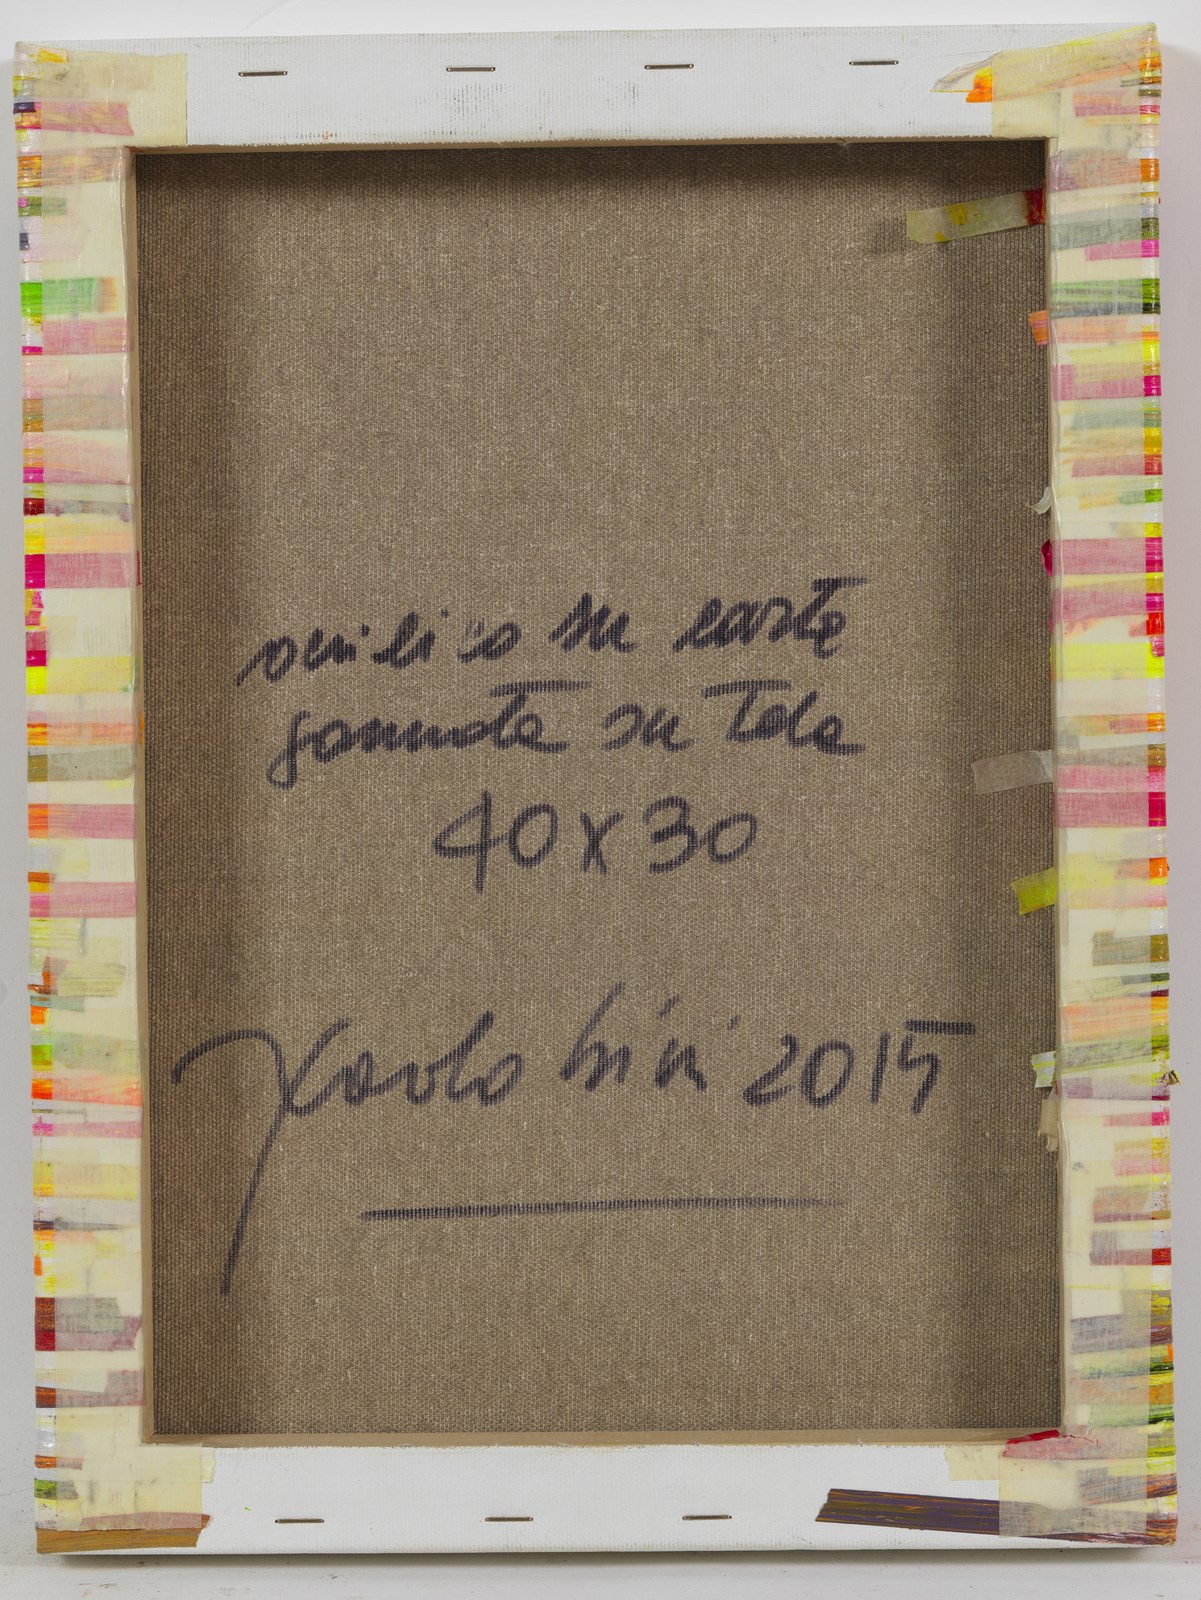 acrilico su carta
gommata su Tela
40x30
Paolo Bini 2015